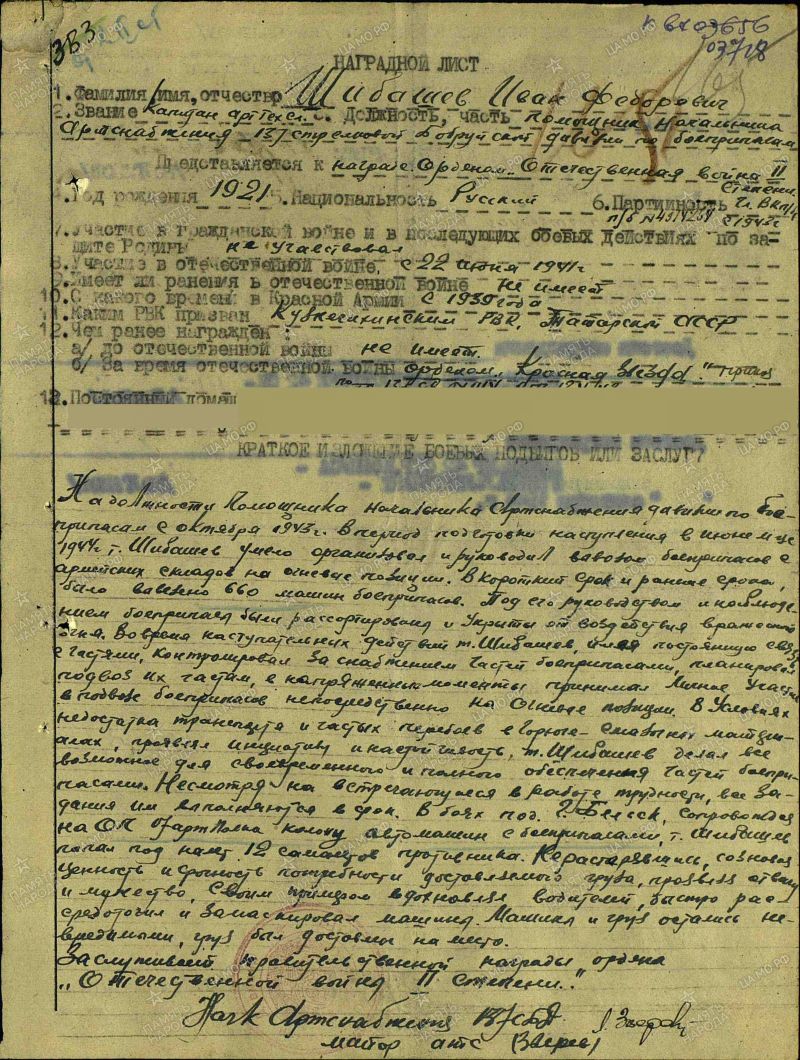 383
НАГРАДНОЙ ЛИСТ
1. Фамилия, имя, отчество Шибашев Иван Федорович
2. Звание Капитан арттехсл. 3. Должность, часть Помощник Начальника
Артснабжения 137 стрелковой Бобруйской дивизии по боеприпасам
Представляется к награде Орденом „Отечественная война II
степени.
4. Год рождения 1921 5. Национальность Русский 6. Партийность Чл. ВКП/б
с 1943г
7. Участие в гражданской войне и в последующих боевых действиях по за-
щите Родины не участвовал
8. Участие в отечественной войне, с 22 июня 1941г
9. Имеет ли ранения в отечественной войне не имеет
10. С какого времени в Красной Армии с 1939 года
11. Каким РВК призван РВК, Татарской СССР
12. Чем ранее награжден:
а/ до отечественной войны не имеет.
б/ За время отечественной войны орденом „Красная Звезда"
13. Постоянный домаш
КРАТКОЕ ИЗЛОЖЕНИЕ БОЕВЫХ ПОДВИГОВ ИЛИ ЗАСЛУГ
На должности Помощника начальника Артснабжения дивизии по бое-
припасам с октября 1943г. В период подготовки наступления в июне м-це
1944г. т. Шибашев умело организовал и руководил вывозом боеприпасов с
армейских складов на огневые позиции. В короткий срок и ранее срока,
было вывезено 660 машин боеприпасов. Под его руководством и наблюде-
нием боеприпасы были рассортированы и укрыты от воздействия вражеского
огня. Во время наступательных действий т. Шибашев, имея постоянную связь
с частями, контролировал за снабжением частей боеприпасами, планировал
подвоз их частям, в напряженные моменты принимал личное участие
в подвозе боеприпасов непосредственно на огневые позиции. В условиях
недостатка транспорта и частых перебоев в горюче-смазочных матери-
алах, проявляя инициативу и настойчивость, т. Шибашев делал все
возможное для своевременного и полного обеспечения частей боепри-
пасами. Несмотря на встречающиеся в работе трудности, все за-
дания им выполняются в срок. В боях под г. сопровождая
на ОП артполка колону автомашин с боеприпасами, т. Шибашев
попал под налет 12 самолетов противника. Не растерявшись, сознавая
ценность и срочность потребности доставляемого груза, проявляя отвагу
и мужество, своим примером вдохновляя водителей, быстро рас-
средоточил и замаскировал машины. Машины и груз остались не-
вредимыми, груз был доставлен на место.
Заслуживает правительственной награды ордена
„Отечественной войны II степени."
Нач Артснабжения 137 СБД
майор атс (Зверев)